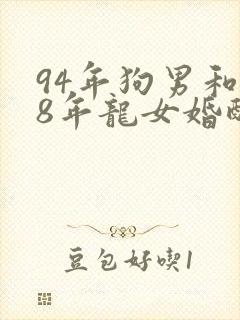 94年狗男和
8年龍女婚
豆包好喫1